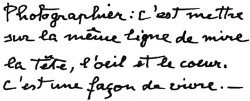 Photographier : c'est mettre
sur la même ligne de mire
la tête, l'oeil et le coeur.
C'est une façon de vivre. —